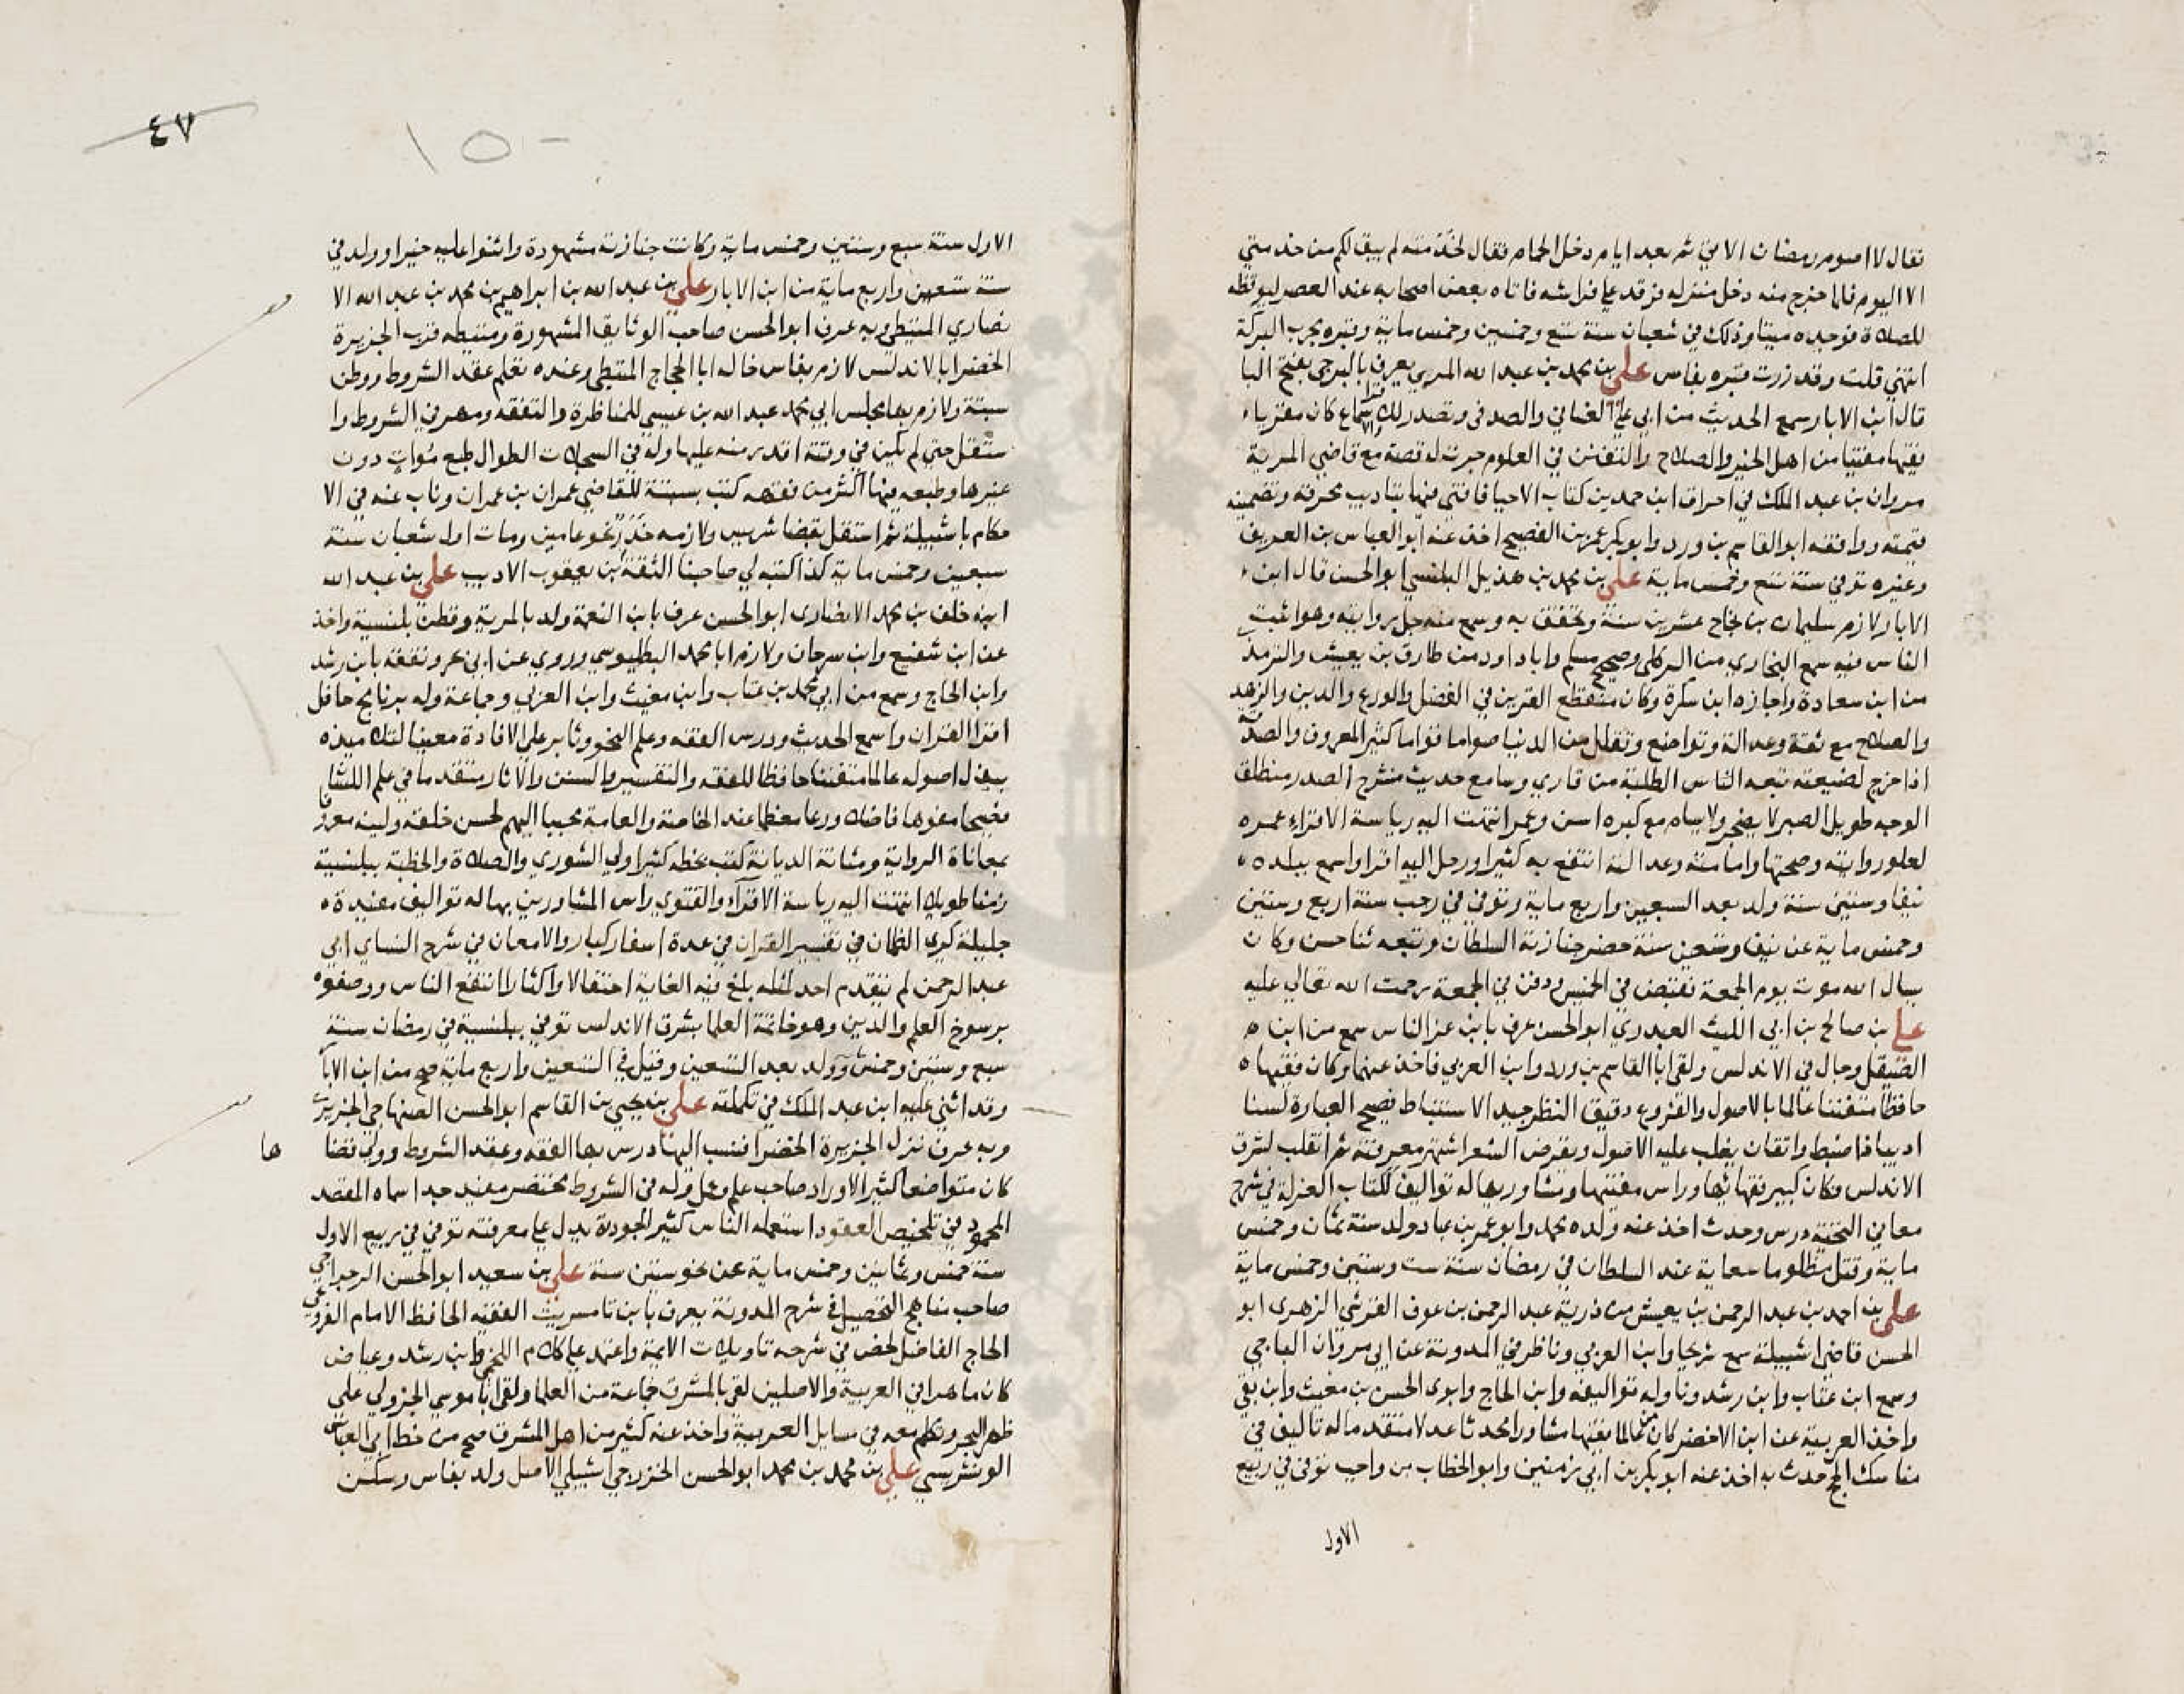 فقال لا اصوم رمضان الاتي ثم بعد ايام دخل الحمام فقال لخدمته لم يبق لكم من خدمتي
الا اليوم فلما خرج منه دخل منزله فرقد علي فراشه فاتاه بعض اصحابه عند العصر ليوقظه
للصلاة فوجده ميتا وذلك في شعبان سنة تسع وخمسين وخمس ماية وقبره بحرب البركة
انتهي قلت وقد زرت قبره بفاس علي بن محمد بن عبد الله المري يعرف بالبرجي بفتح البا
قال ابن الابار سمع الحديث من ابي علي الغساني والصدفي وتصدر للاقرا والاسماع كان مقريا
فقيها مفتيا من اهل الخير والصلاح والتفنن في العلوم جرت له قصة مع قاضي المرية
مروان بن عبد الملك في احراق ابن حمدين كتاب الاحيا فافتي فيها بتاديب محرقه وتضمينه
قيمته ووافقه ابو القاسم بن ورد وابو بكر عمر بن الفصيح اخذ عنه ابو العباس بن العريف
وغيره توفي سنة تسع وخمس ماية علي بن محمد بن هذيل البلنسي ابو الحسن قال ابن
الابار لازم سليمان بن نجاح عشرين سنة وتحقق به وسمع منه جل رواياته وهو اثبت
الناس فيه سمع البخاري من الركلي وصحيح مسلم وابا داود من طارق بن يعيش والترمذ
من ابن سعادة واجازه ابن سكرة وكان منقطع القرين في الفضل والورع والدين والزهد
والصلاح مع ثقة وعدالة وتواضع وتقلل من الدنيا صواما قواما كثير المعروف والصدقة
اذا خرج لضيعته تبعه الناس الطلبة من قاري وسامع حديث منشرح الصدر منطلق
الوجه طويل الصبر لا يضجر ولا يسام مع كبره اسن وعمر انتهت اليه رياسة الاقراء عمره
لعلو روايته وصحتها وامامته وعدالته انتفع به كثير ورحل اليه اقرا واسمع ببلده
نيفا وستين سنة ولد بعد السبعين واربع ماية وتوفي في رجب سنة اربع وستين
وخمس ماية عن نيف وتسعين سنة حضر جنازته السلطان وتبعه ثنا حسن وكان
يسال الله موت يوم الجمعة فقبض في الخميس ودفن في الجمعة رحمت الله تعالي عليه
علي بن صالح بن ابي الليث العبدري ابو الحسن عرف بابن عز الناس سمع من ابن
الصيقل وجال في الاندلس ولقي ابا القاسم بن ورد وابن العربي فاخذ عنهما وكان فقيها
حافظا متفننا عالما بالاصول والفروع دقيق النظر جيد الاستنباط فصيح العبارة لسنا
اديبا ذا ضبط واتقان يغلب عليه الاصول ويقرض الشعر اشتهر معرفته ثم انقلب لشرق
الاندلس فكان كبير فقهائها وراس مفتيها ومشاوريها له تواليف ككتاب العزلة في شرح
معاني التحية درس وحدث اخذ عنه ولده محمد وابو عمر بن عباد ولد سنة ثمان وخمس
ماية وقتل مظلوما سعاية عند السلطان في رمضان سنة ست وستين وخمس ماية
علي بن احمد بن عبد الرحمن بن يعيش من ذرية عبد الرحمن بن عوف القرشي الزهري ابو
الحسن قاضي اشبيلية سمع شريحا وابن العربي وناظر في المدونة عن ابي مروان الباجي
وسمع ابن عتاب وابن رشد وناوله تواليفه وابن الحاج وابوي الحسن بن مغيث وابن بقي
واخذ العربية عن ابن الاخضر كان عالما فقيها مشاورا محدثا عدلا متقدما له تاليف في
مناسك الحج حدث به اخذ عنه ابو بكر بن ابي زمنين وابو الخطاب بن واجب توفي في ربيع
الاول
٤٧
١٥٠
الاول سنة سبع وستين وخمس ماية وكانت جنازته مشهودة واثنوا عليه خيرا وولد في
سنة تسعين واربع ماية من ابن الابار علي بن عبد الله بن ابراهيم بن محمد بن عبد الله الا
نصاري المتيطي وبه عرف ابو الحسن صاحب الوثايق المشهورة ومتيطه قرب الجزيرة
الخضرا بالاندلس لازم بفاس خاله ابا الحجاج المتيطي وعنده تعلم عقد الشروط ووطن
سبتة ولازم بها مجلس ابي محمد عبد الله بن عيسي للمناظرة والتفقه ومهر في الشروط وا
ستقل حتي لم يكن في وقته اقدر منه عليها وله في السجلات الطوال طبع موات دون
غيرها وطبعه فيها اكثر من فقهه كتب بسبتة للقاضي عمران بن عمران وناب عنه في الا
حكام باشبيلية ثم استقل بقضا شريس ولازمه خدر نحو عامين ومات اول شعبان سنة
سبعين وخمس ماية كذا كتبه لي صاحبنا الثقة بن يعقوب الاديب علي بن عبد الله
ابن خلف بن محمد الانصاري ابو الحسن عرف بابن النعمة ولد بالمرية وقطن بلنسية واخذ
عن ابن شفيع وابن سرحان ولازم ابا محمد البطليوسي وروي عن ابي بحر وتفقه بابن رشد
وابن الحاج وسمع من ابي محمد بن عتاب وابن مغيث وابن العربي وجماعة وله برنامج حافل
اقرا القران واسمع الحديث ودرس الفقه وعلم النحو وثابر علي الافادة معينا لتلاميذه
يبذل اصوله عالما متفننا حافظا للفقه والتفسير والسنن والاثار متقدما في علم اللسان
فصيحا مفوها فاضلا ورعا معظما عند الخاصة والعامة محببا اليهم لحسن خلقه ولينه معروفا
بمعاناة الرواية ومتانة الديانة كتب بخطه كثيرا ولي الشوري والصلاة والخطبة ببلنسية
زمنا طويلا انتهت اليه رياسة الاقراء والفتوي راس المشاورين بها له تواليف مفيدة
جليلة كري الظمان في تفسير القران في عدة اسفار كبار والامعان في شرح النساي ابي
عبد الرحمن لم يتقدم احد لمثله بلغ فيه الغاية احتفالا واكثارا انتفع الناس ووصفوه
برسوخ العلم والدين وهو خاتمة العلما بشرق الاندلس توفي ببلنسية في رمضان سنة
سبع وستين وخمس وولد بعد التسعين وقيل في التسعين واربع ماية صح من ابن الابار
وقد اثني عليه ابن عبد الملك في تكملته علي بن يحيي بن القاسم ابو الحسن الصنهاجي الجزيري
وبه عرف نزل الجزيرة الخضرا فنسب اليها درس بها الفقه وعقد الشروط وولي قضا ها
كان متواضعا كثير الاوراد صاحب علم وعمل وله في الشروط مختصر مفيد جدا سماه المقصد
المحمود في تلخيص العقود استعمله الناس كثير الجودة يدل علي معرفته توفي في ربيع الاول
سنة خمس وثمانين وخمس ماية عن نحو ستين سنة علي بن سعيد ابو الحسن الرجراجي
صاحب مناهج التحصيل في شرح المدونة يعرف بابن تامسريت الفقيه الحافظ الامام الفروعي
الحاج الفاضل لخص في شرحه تاويلات الايمة واعتمد علي كلام اللخمي وابن رشد وعياض
كان ماهرا في العربية والاصلين لقي بالمشرق جماعة من العلما ولقي ابا موسي الجزولي علي
ظهر البحر وتكلم معه في مسايل العربية واخذ عنه كثير من اهل المشرق صح من خط ابي العباس
الونشريسي علي بن محمد بن محمد ابو الحسن الخزرجي اشبيلي الاصل ولد بفاس وسكن